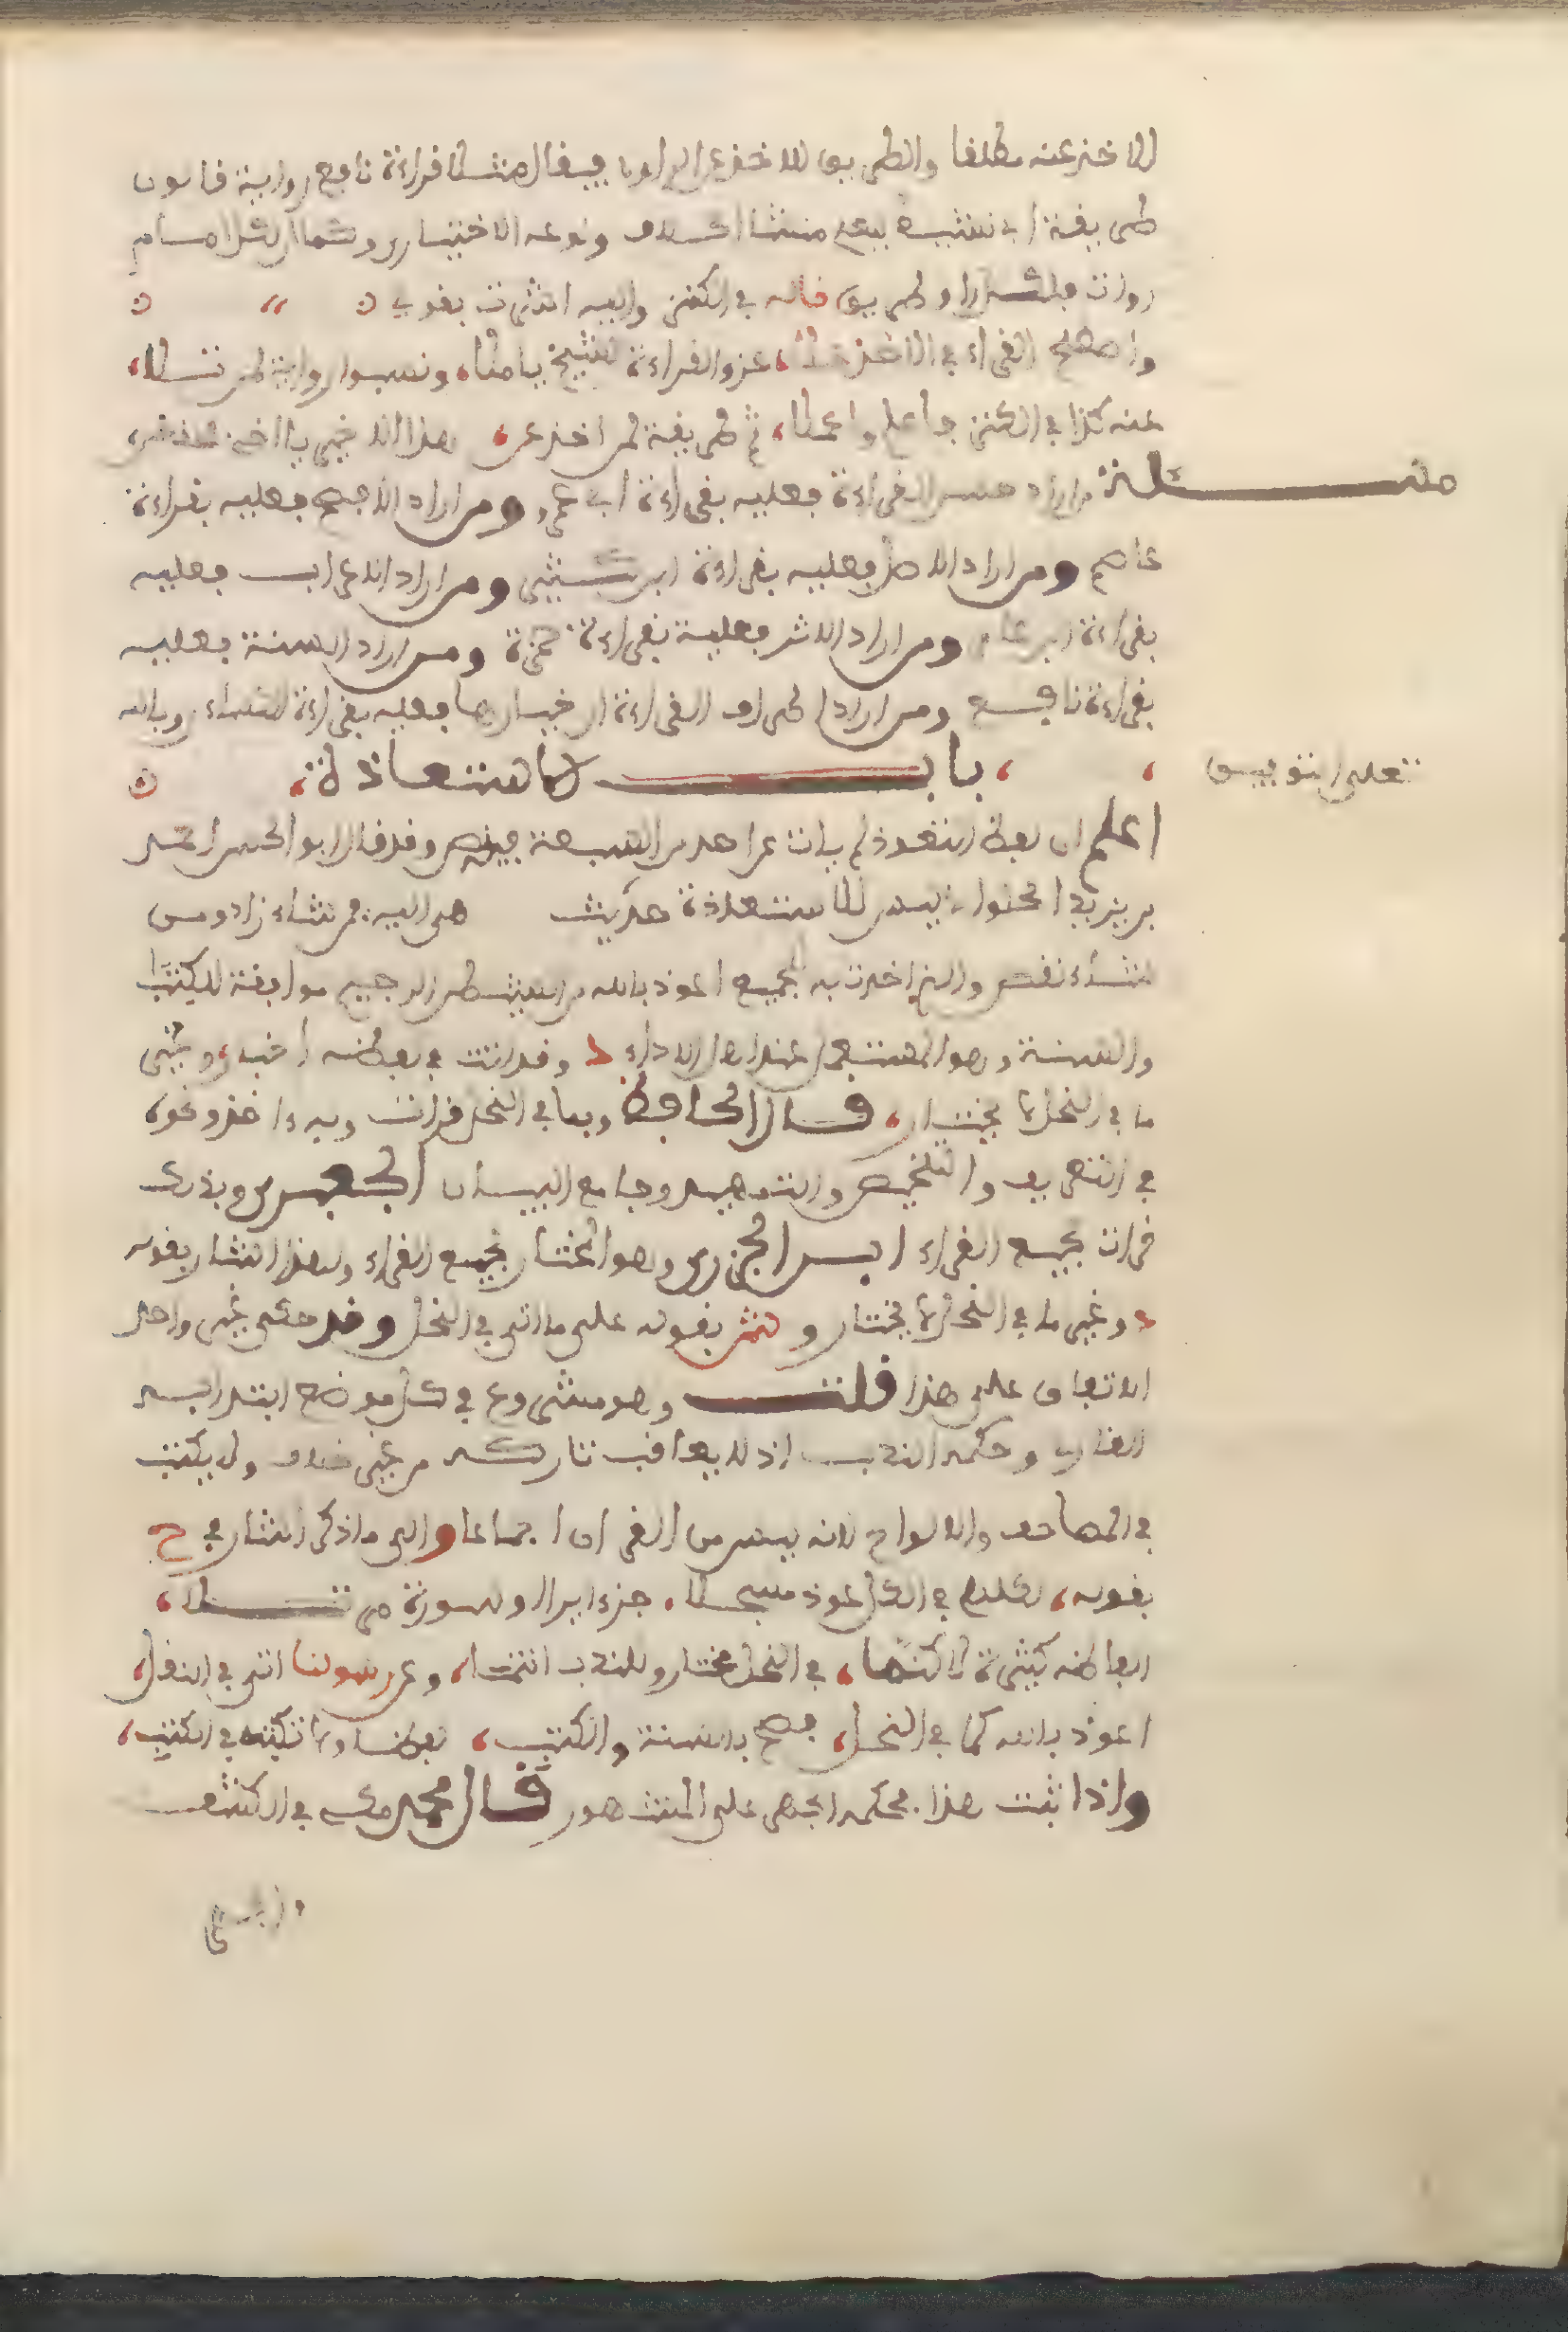 للاخذ عنه مطلقا والطريق للاخذ عن الراوي فيقال مثلا قراءة نافع رواية قالون
طريقة ابي نشيط ليعلم منشا الخلاف ونوعه الاختياري وكما ان لكل امام
رواة فلكل راو طريق قاله في الكنز واليه اشرت بقولي
واصطلح القراء في الاخذ عزو القراءة للشيخ يا ملا، ونسبوا رواية لمن تلا،
عنه كذا في الكنز فاعلم واعملا، ثم طريقة لمن اخذ عن، هذا الاخير يا اخي
مسئلة من اراد حسن القراءة فعليه بقراءة ابي عمرو ومن اراد الافصح فعليه بقراءة
عاصم ومن اراد الاصل فعليه بقراءة ابن كثير ومن اراد الاعراب فعليه
بقراءة ابن عامر ومن اراد الاثر فعليه بقراءة حمزة ومن اراد السنة فعليه
بقراءة نافع ومن اراد اطراف القراءة او خيارها فعليه بقراءة الكساءي وبالله
تعلى التوفيق
، باب الاستعاذة،
اعلم ان لفظ التعوذ لم يات عن احد من السبعة فيه نص وقد قال ابو الحسن احمد
بن يزيد الحلواني ليس للاستعاذة حد ينتهى اليه فمن شاء زاد ومن
شاء نقص والذي اخذت به لجميع اعوذ بالله من الشيطن الرجيم موافقة للكتب
والسنة وهو المستعمل عند اهل الاداء وقد اتت في لفظه اخبار وغير
ما في النحل لا يختار، قال الحافظ وبما في النحل قرات وبه ءاخذ ونحوه
في التعريف والتلخيص والتمهيد وجامع البيان الجعبري وبذلك
قرات لجميع القراء ابن الجزري وهو المختار لجميع القراء ولهذا اشار بقوله
وغير ما في النحل لا يختار و بقوله على ما اتى في النحل وقد حكى غير واحد
الاتفاق على هذا قلت وهو مشروع في كل موضع ابتدا به
القاري وحكمه الندب اذ لا يعاقب تاركه من غير خلاف ولم يكتب
في المصاحف والالواح لانه ليس من القرءان اجماعا والى ما ذكر اشار في ح
بقوله، لكلهم في الكل عوذ مسجلا، جزءا بدا او سورة من تلا،
الفاظه كثيرة لاكنما، في النحل مختار وللندب انتما، وعن رسولنا اتى في النقل،
اعوذ بالله كما في النحل، فصح بالسنة والكتب، لفظا ولا تكتبه في الكتب،
واذا ثبت هذا فحكمه الجهر على المشهور قال محمد مكي في الكشف